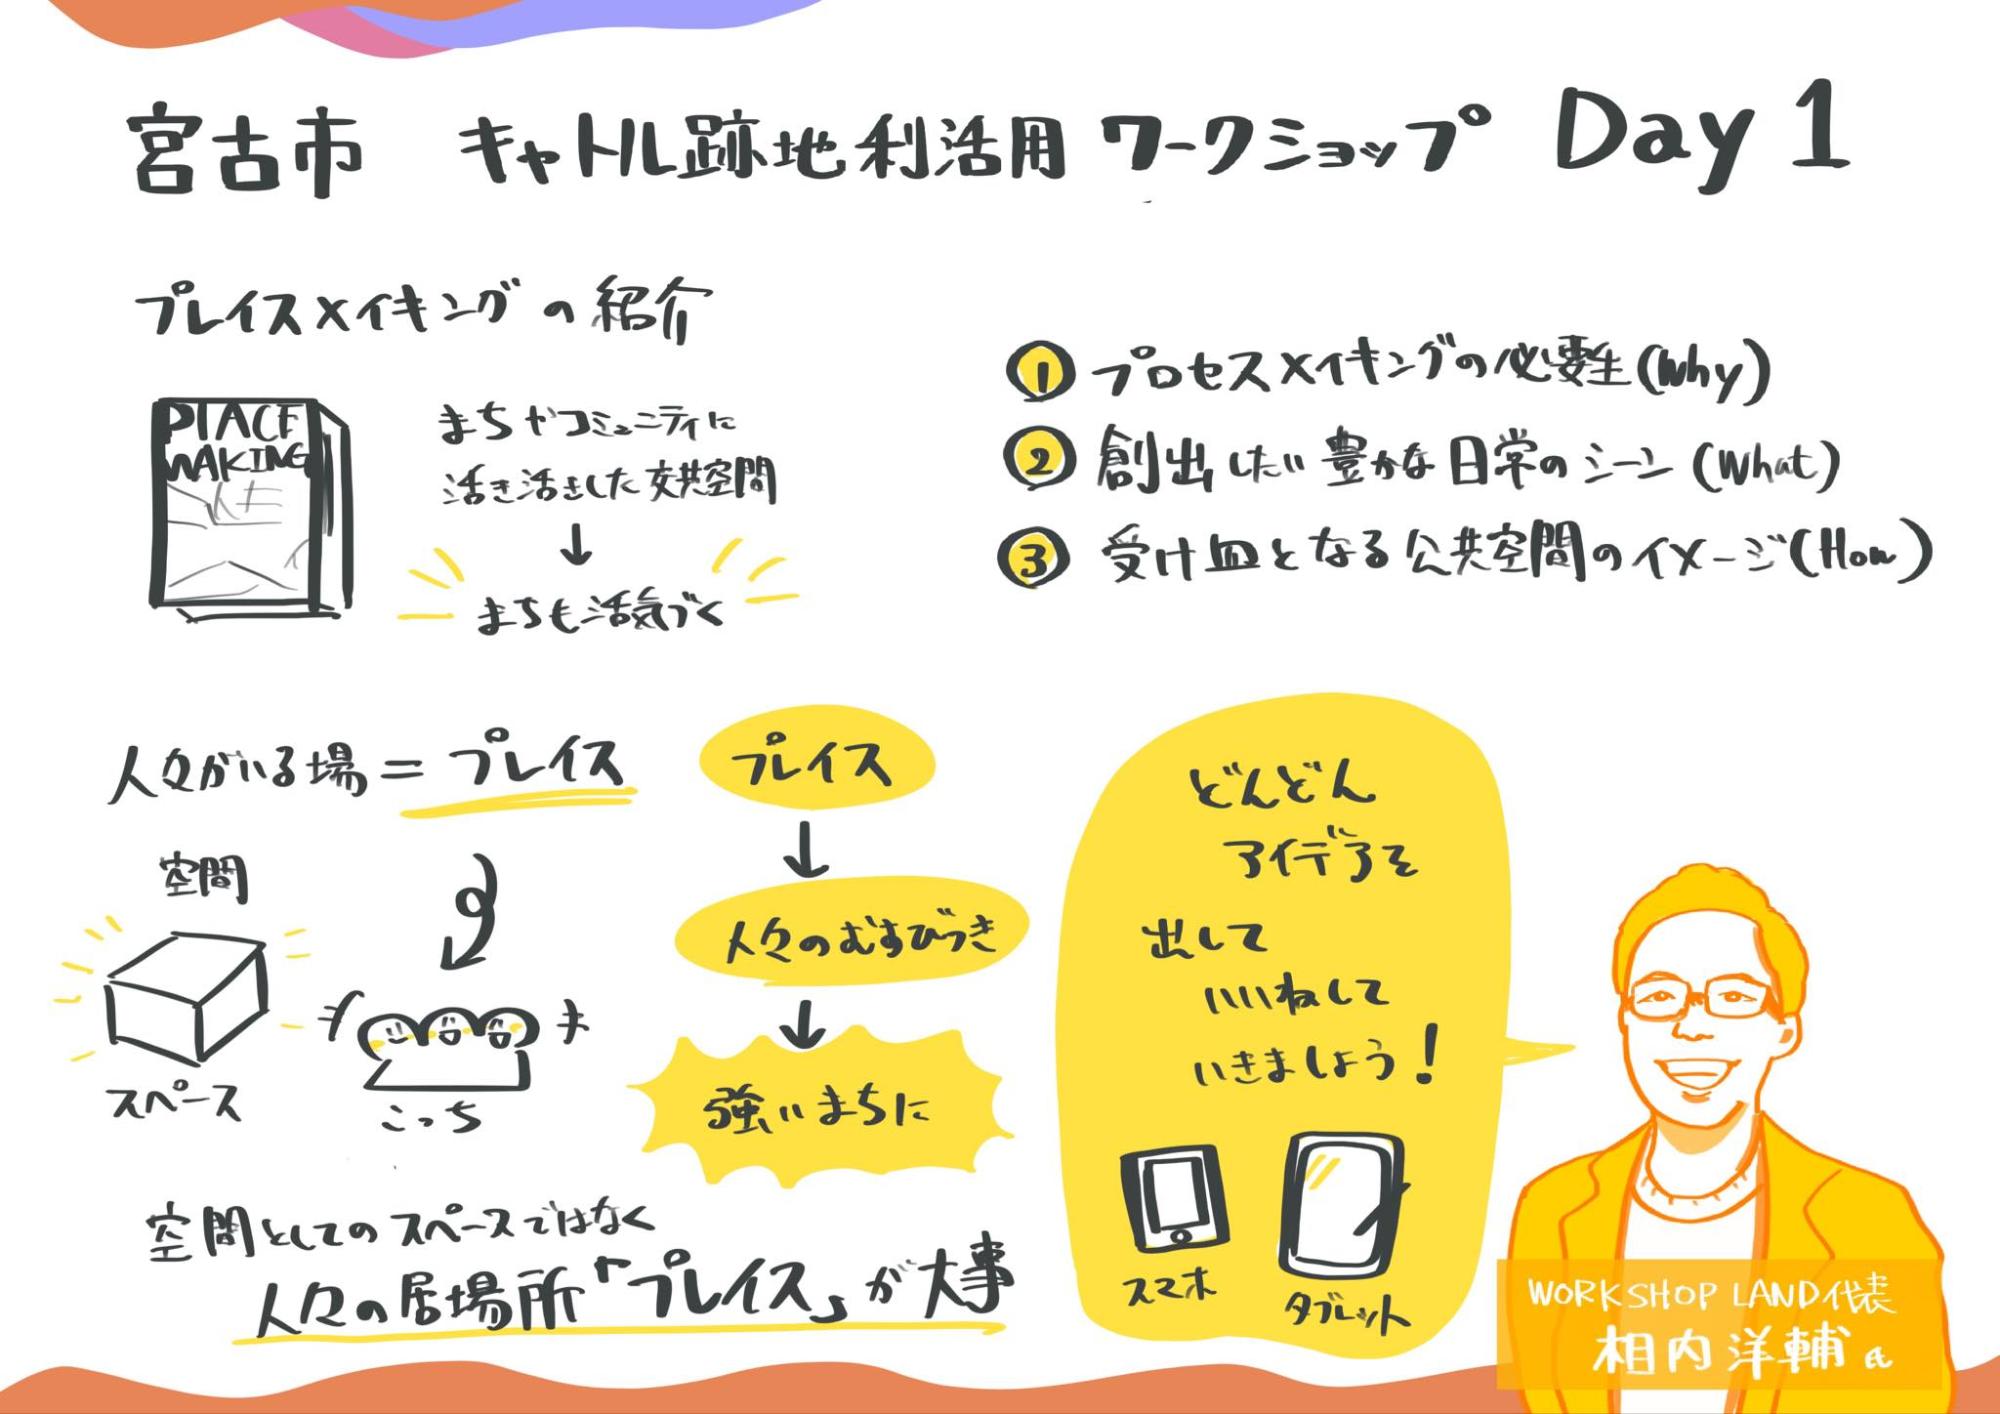 宮古市 キャトル跡地利活用ワークショップ Day 1
プレイスメイキングの紹介
PLACE
MAKING
まちやコミュニティに
活き活きした公共空間
↓
まちも活気づく
① プロセスメイキングの必要性(Why)
② 創出したい豊かな日常のシーン(What)
③ 受け皿となる公共空間のイメージ(How)
人々がいる場=プレイス
空間
スペース
こっち
プレイス
↓
人々のむすびつき
↓
強いまちに
空間としてのスペースではなく
人々の居場所「プレイス」が大事
どんどん
アイデアを
出して
いいねして
いきましょう!
スマホ
タブレット
WORKSHOP LAND代表
相内洋輔